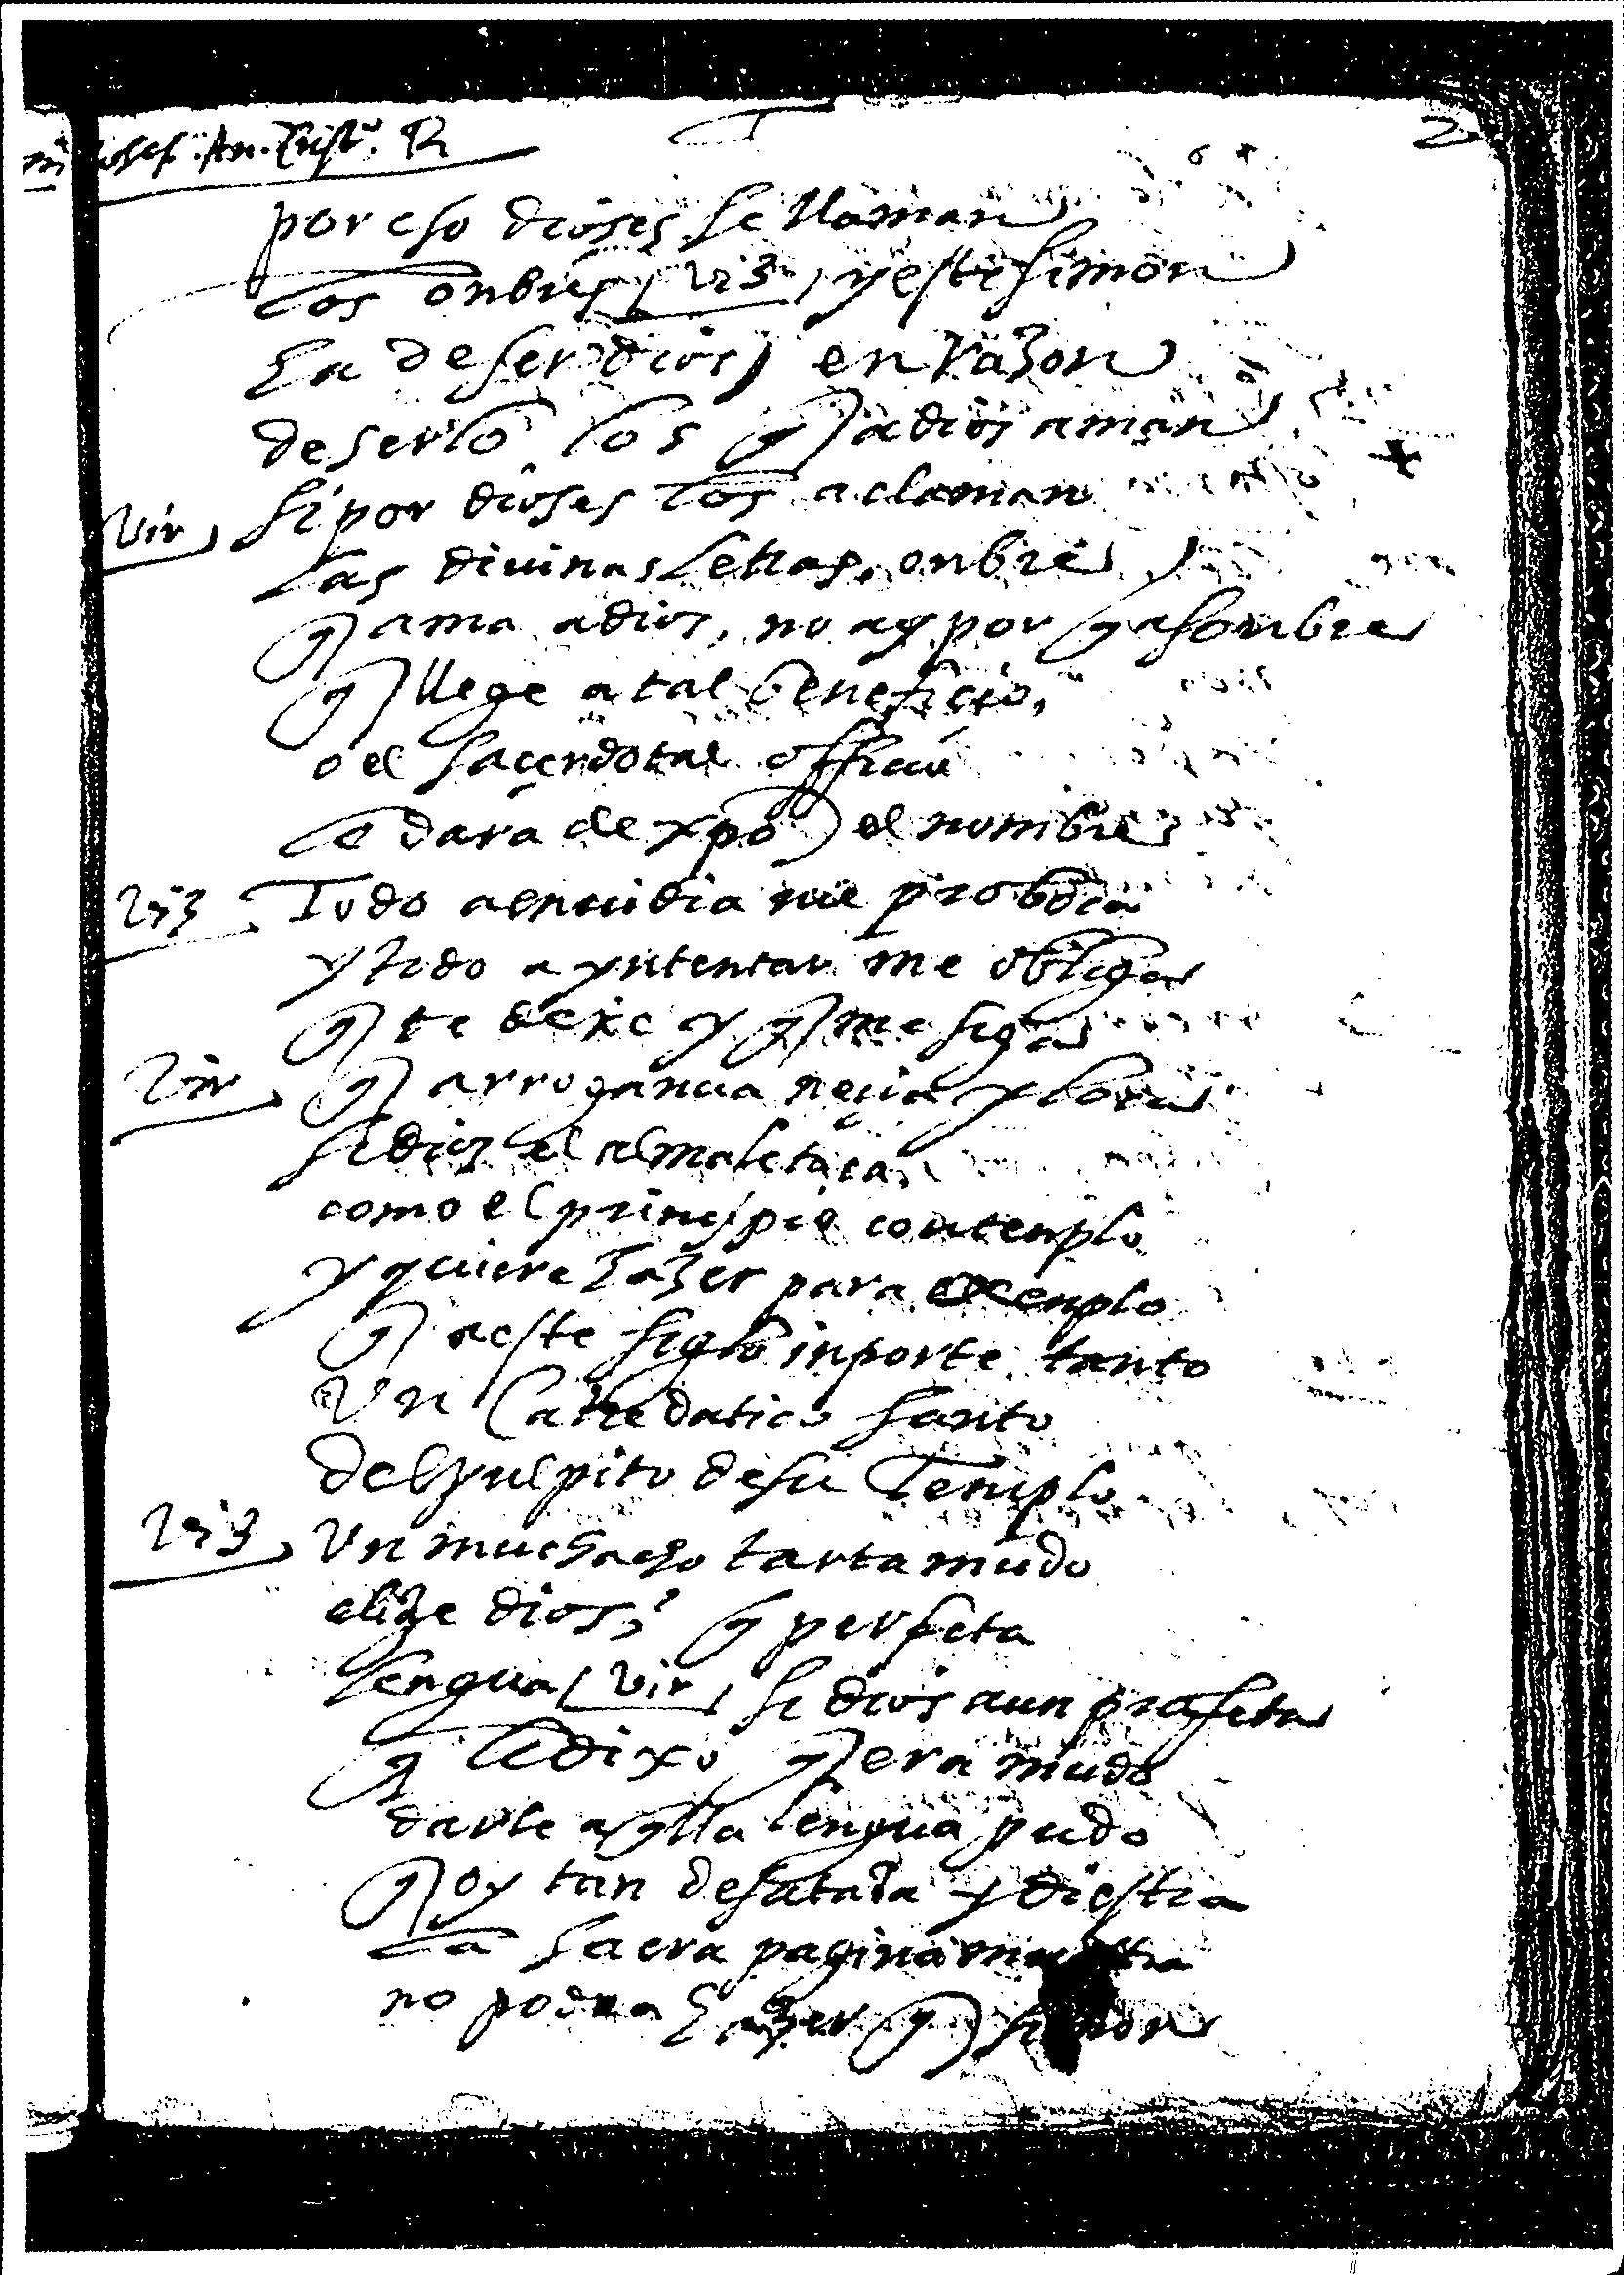 2
por eso dioses se llaman
los onbres (Viz) y este simon
ha de ser dios) en razon
de serlo los q a dios aman
Vir si por dioses los aclaman
las diuinas letras, onbre
q ama a dios, no ay por q asonbre
q llege a tal beneficio,
o el sacerdotal officio
le dara de xpo el nombre
Viz Todo a enuidia me proboca
y todo a yntentar me obliga
q te dexe y q me siga
Vir q arrogancia neçia y loca
si dios el alma le toca
como el prinçipio contenplo
y quiere hazer para exenplo
q a este siglo inporte tanto
Vn Catredatico santo
del pulpito de su Templo
Viz Vn muchacho tartamudo
elige dios, q perfeta
lengua (Vir) si dios a un profeta
q le dixo q era mudo
darle aqlla lengua pudo
q oy tan desatada y diestra
la sacra pagina muestra
no podra hazer q simon